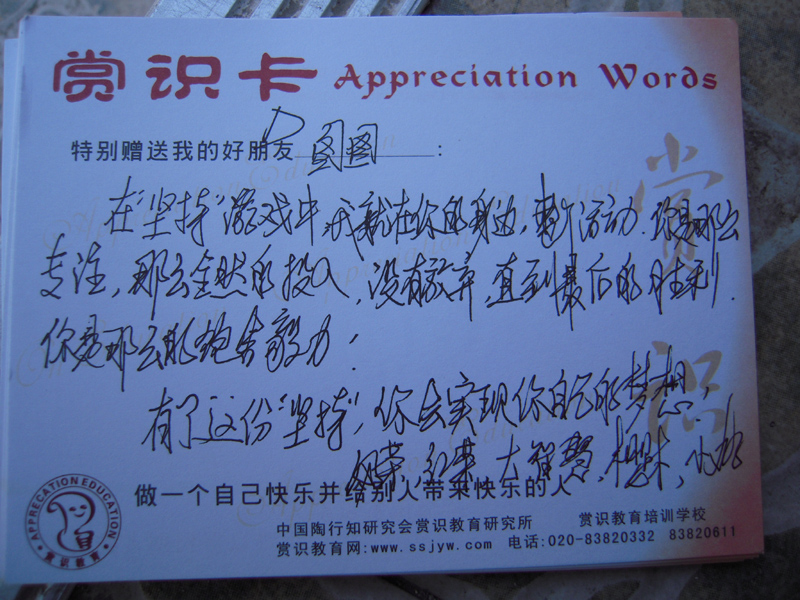 赏识卡 Appreciation Words
特别赠送我的好朋友 图图 :
在"坚持"游戏中,我就在你的身边,整个活动.你是那么
专注,那么全然的投入,没有放弃,直到最后的胜利.
你是那么能饱含毅力!
有了这份"坚持",你会实现你自己的梦想,
大智慧
做一个自己快乐并给别人带来快乐的人
中国陶行知研究会赏识教育研究所 赏识教育培训学校
赏识教育网:www.ssjyw.com 电话:020-83820332 83820611
APPRECATION EDUCATION
赏识教育
赏识